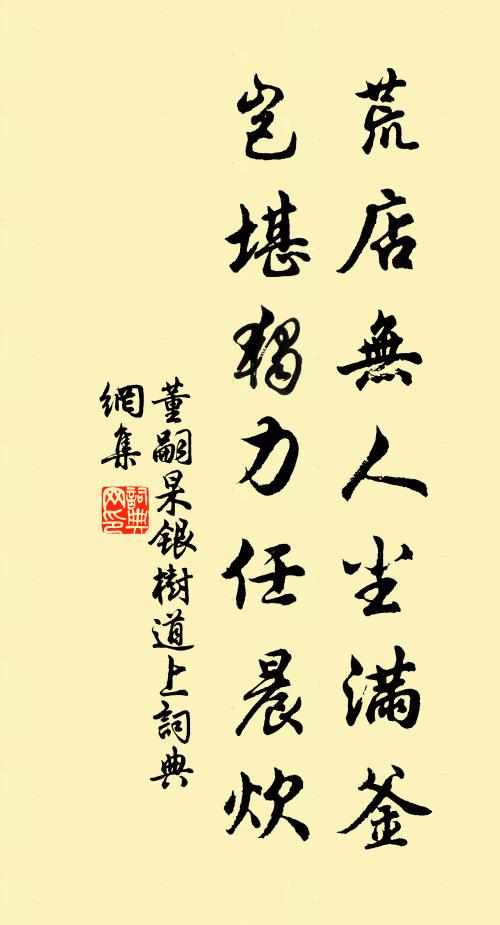 荒店無人尘满釜
岂堪独力任晨炊
董嗣杲銀樹道上詞典
網集
詞典
网印